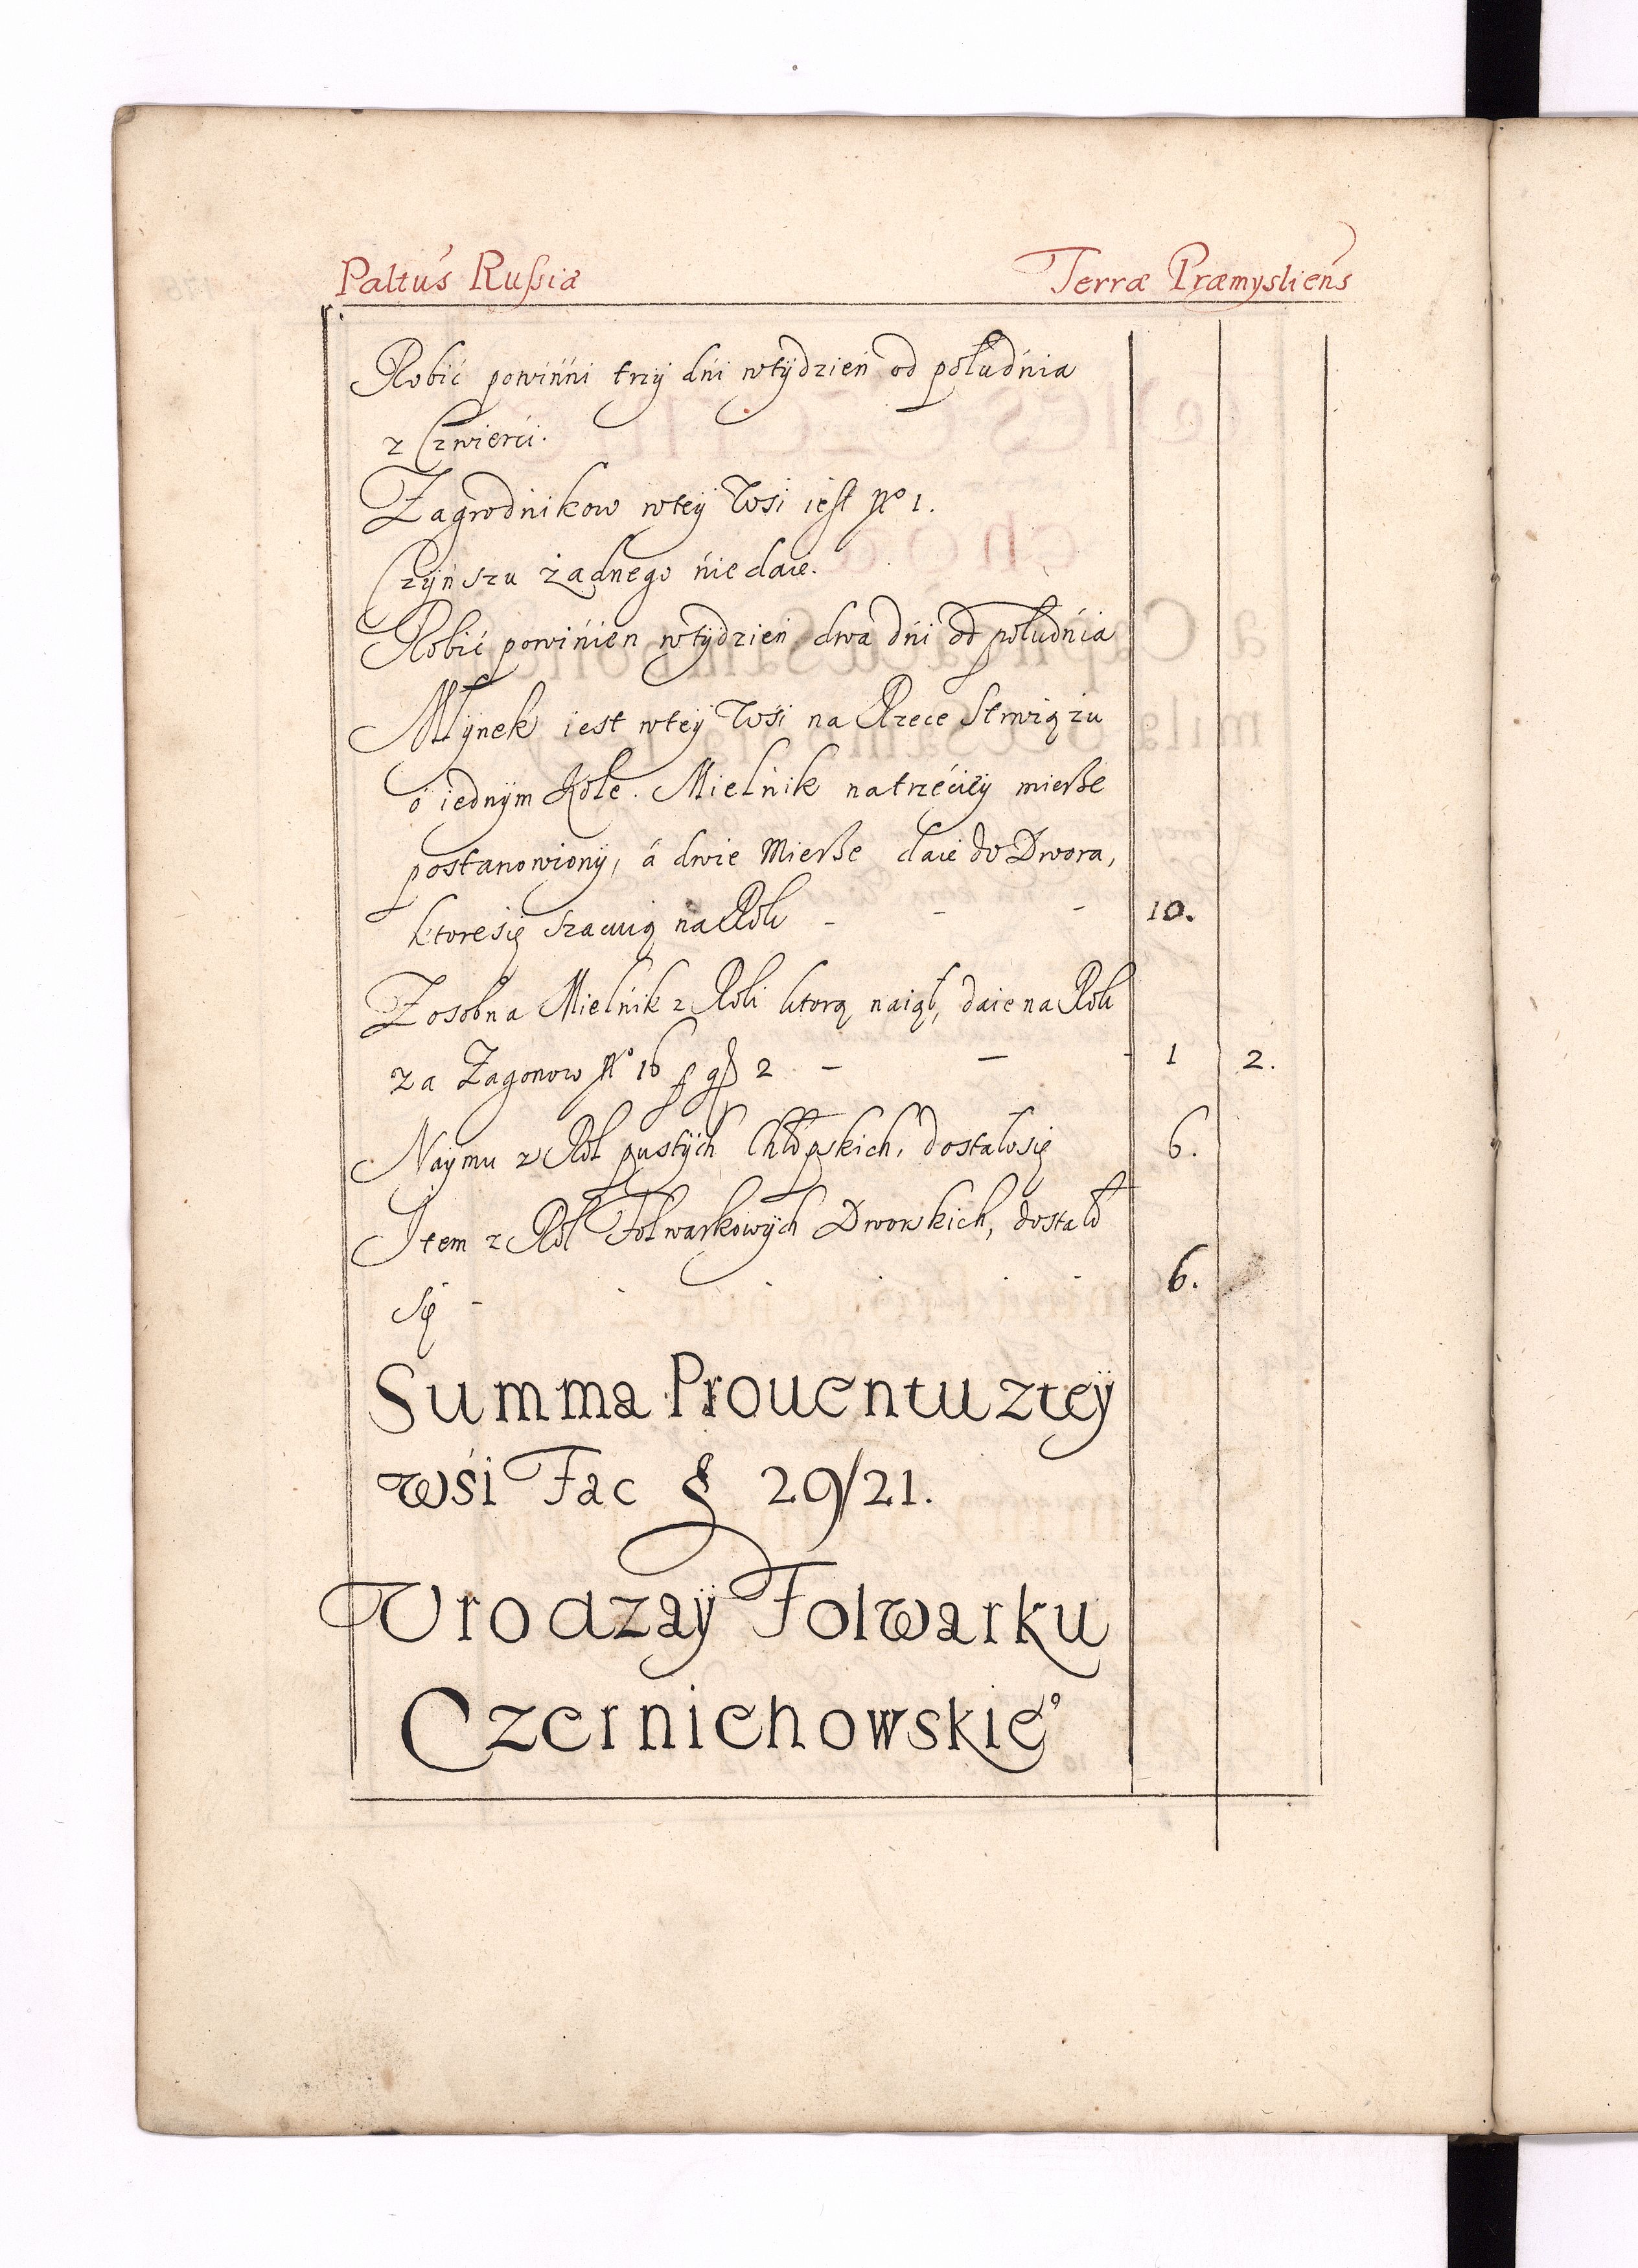 Paltus Russia Terræ Præmysliens
Robić powinni trzÿ dńi wtÿdzień od południa
z Czwierći.
Zagrodnikow wteÿ Wsi iest No 1.
Czÿnszu żadnego ńie daie.
Robić powińien wtÿdzień dwa dńi od południa
Młÿnek iest wteÿ Wśi na Rzece Strwiążu
o iednÿm Kole. Mielńik natrzećieÿ mierße
postanowionÿ, á dwie Mierße daie do Dwora,
ktoresię szacuią na Rok - - - 10.
Zosobna Mielńik z Roli ktorą naiął, daie na Rok
za Zagonow No 16 p gß 2 - - - 1 2.
Naÿmu z Rol pustÿch Chłopskich, dostałosię 6.
Item z Rol Folwarkowÿch Dworskich, dostało
się - 6.
Summa Prouentu zteÿ
wśi Fac f 29/21.
Vrodzaÿ Folwarku
Czernichowskieo